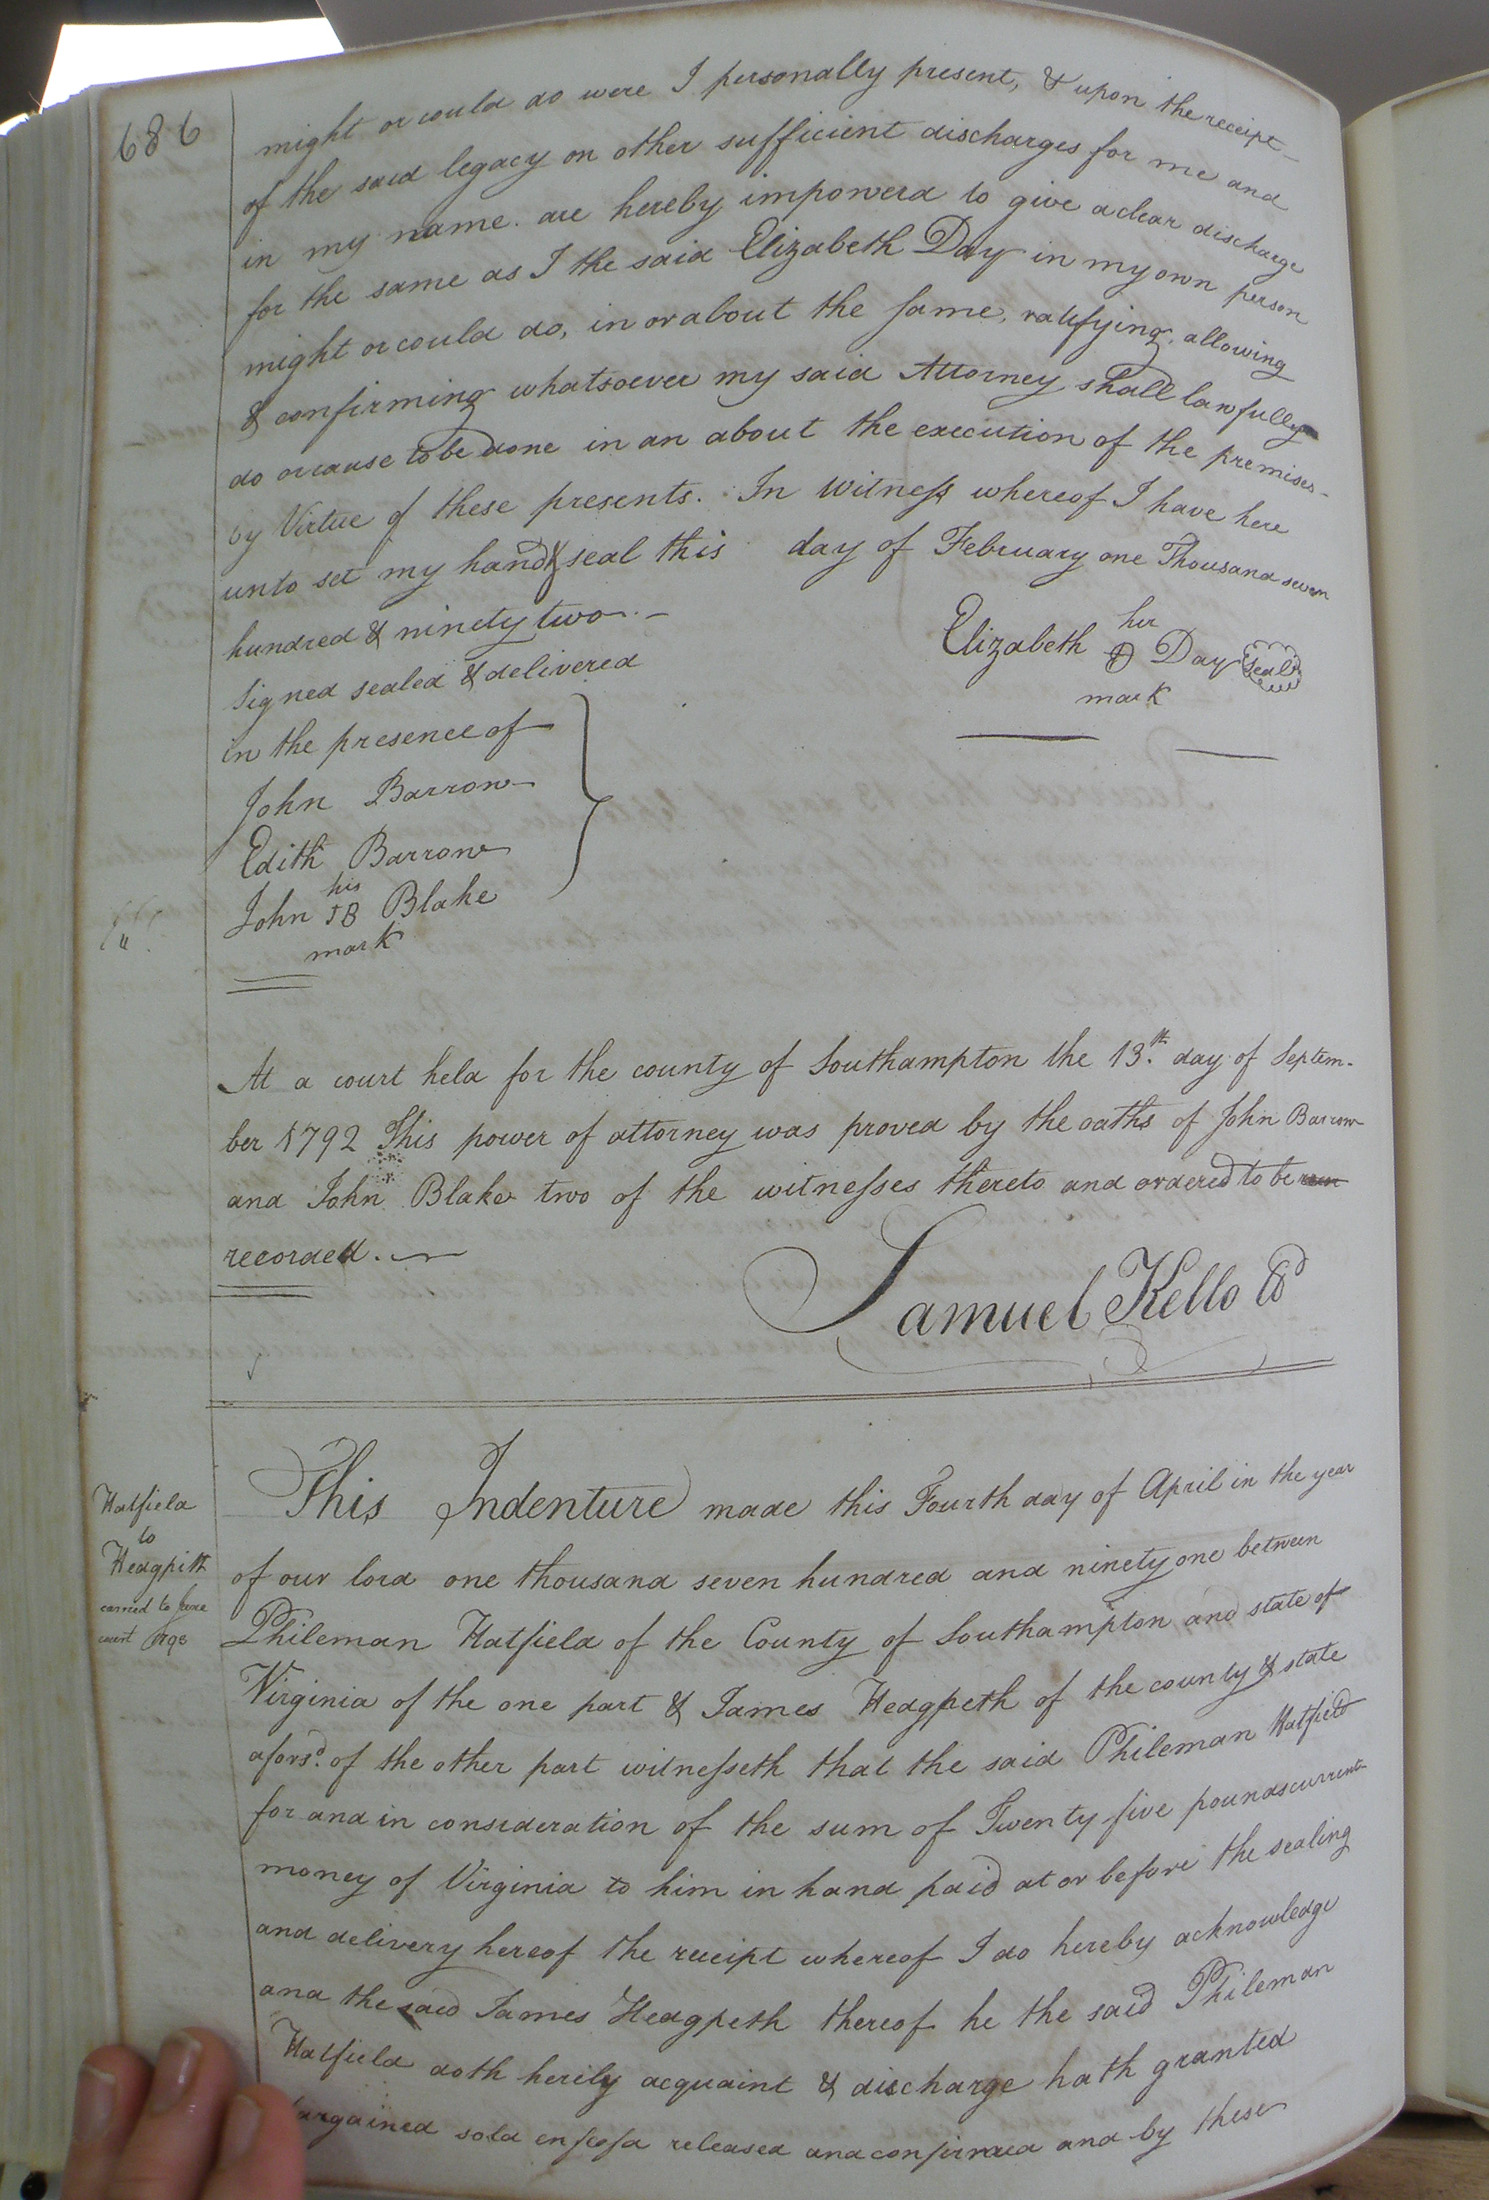 686
might or could do were I personally present, & upon the receipt
of the said legacy on other sufficient discharges for me and
in my name. are hereby impowerd to give a clear discharge
for the same as I the said Elizabeth Day in my own person
might or could do, in or about the same, ratifying, allowing
& confirming whatsoever my said Attorney shall lawfully
do or cause to be done in an about the execution of the premises
by Virtue of these presents. In Witness whereof I have here
unto set my hand & seal this day of February one Thousand seven
hundred & ninety two
Signed sealed & delivered
in the presence of
John Barrow
Edith Barrow
his
John JB Blake
mark
her
Elizabeth D Day Seal
mark
At a court held for the county of Southampton the 13th. day of Septem-
ber 1792 This power of attorney was proved by the oaths of John Barrow
and John Blake two of the witnesses thereto and ordered to be
recorded.
Samuel Kello Cl
Hatfield
to
Hedgpith
This Indenture made this Fourth day of April in the year
of our lord one thousand seven hundred and ninety one between
Phileman Hatfield of the County of Southampton and state of
Virginia of the one part & James Hedgpeth of the county & state
aforsd. of the other part witnesseth that the said Phileman Hatfield
for and in consideration of the sum of Twenty five pounds current
money of Virginia to him in hand paid at or before the sealing
and delivery hereof the receipt whereof I do hereby acknowledge
and the said James Hedgpeth thereof he the said Phileman
Hatfield doth herily acquaint & discharge hath granted
bargained sold enfeofd released and confirmed and by these